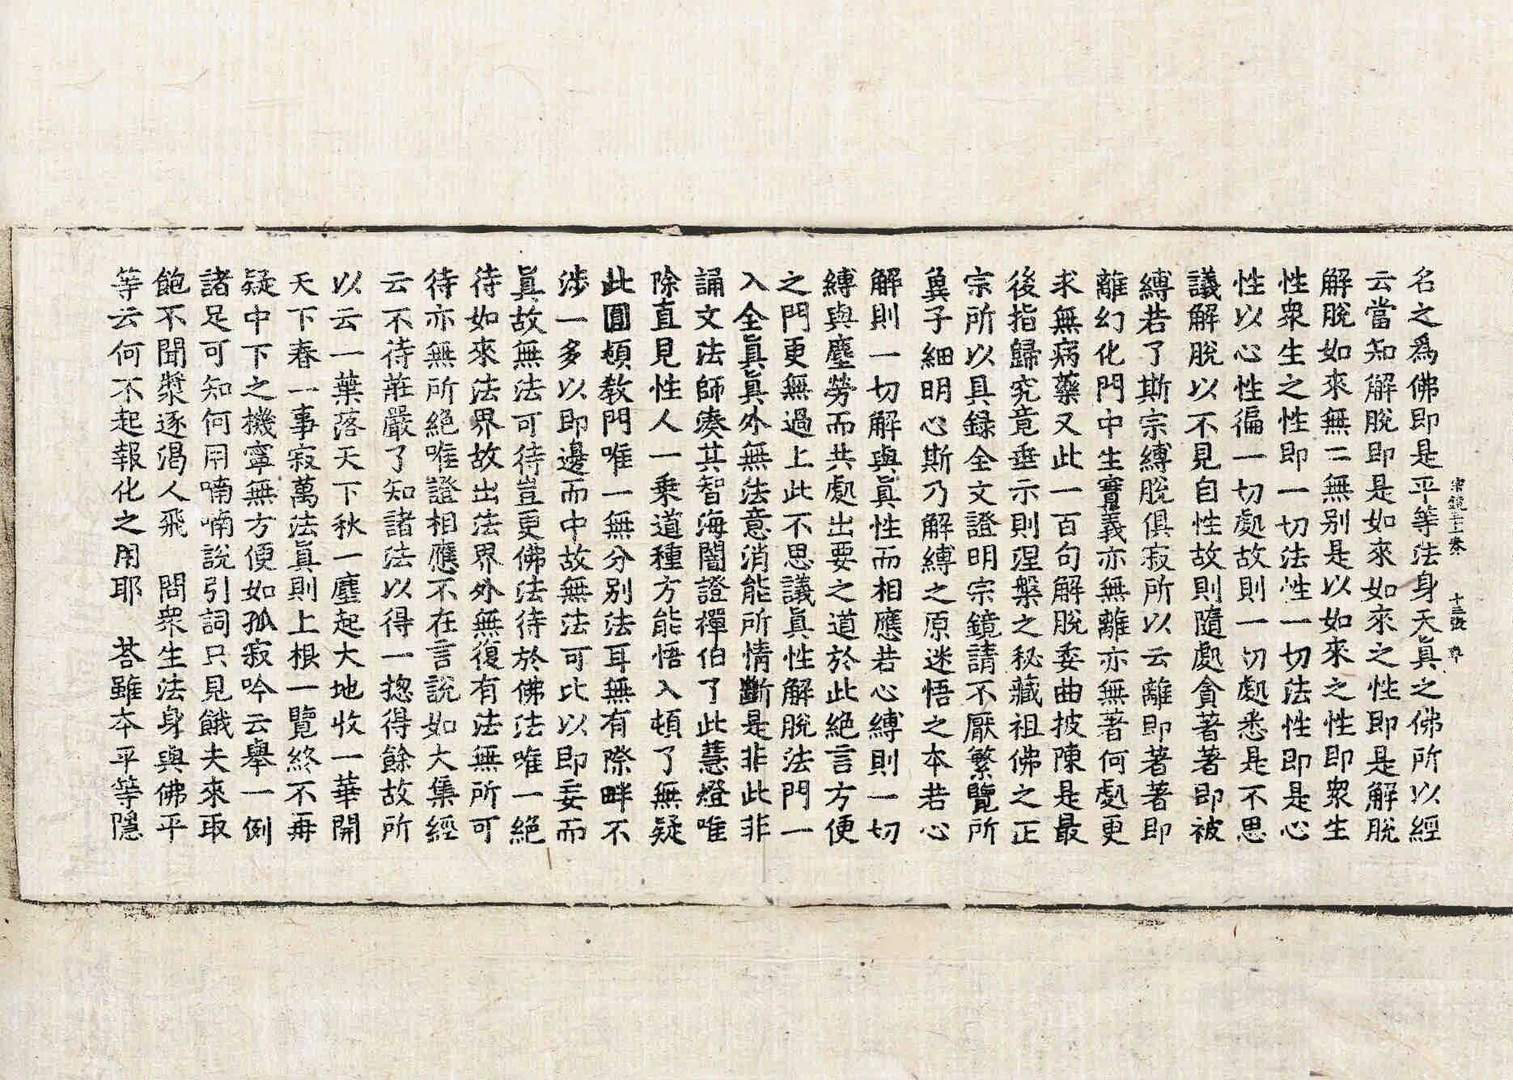 名之爲佛即是平等法身天真之佛所以經
云當知解脫即是如來如來之性即是解脫
解脫如來無二無別是以如來之性即衆生
性衆生之性即一切法性一切法性即是心
性以心性徧一切處故則一切處悉是不思
議解脫以不見自性故則隨處貪著著即被
縛若了斯宗縛脫俱寂所以云離即著著即
離幻化門中生實義亦無離亦無著何處更
求無病藥又此一百句解脫委曲披陳是最
後指歸究竟垂示則涅槃之秘藏祖佛之正
宗所以具録全文證明宗鏡請不厭繁覽所
兾子細明心斯乃解縛之原迷悟之本若心
解則一切解與眞性而相應若心縛則一切
縛與塵勞而共處出要之道於此絕言方便
之門更無過上此不思議眞性解脫法門一
入全眞眞外無法意消能所情斷是非此非
誦文法師湊其智海闇證禪伯了此慧燈唯
除直見性人一乘道種方能悟入頓了無疑
此圓頓教門唯一無分別法耳無有際畔不
涉一多以即邊而中故無法可比以即妄而
眞故無法可待豈更佛法待於佛法唯一絕
待如來法界故出法界外無復有法無所可
待亦無所絕唯證相應不在言說如大集經
云不待莊嚴了知諸法以得一揔得餘故所
以云一葉落天下秋一塵起大地收一華開
天下春一事寂萬法眞則上根一覽終不再
疑中下之機寧無方便如孤寂吟云舉一例
諸足可知何用喃喃說引詞只見餓夫來取
飽不聞漿逐渴人飛　問衆生法身與佛平
等云何不起報化之用耶　荅雖本平等隱